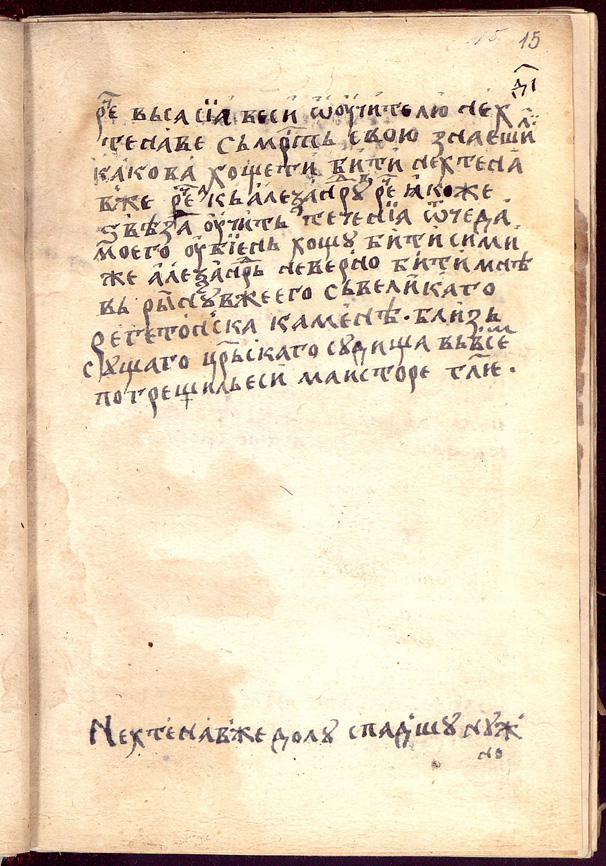 15
д҃і
рⷱ҇е вьса сїа веси ѿ оучителю нех
тенаве сьмрть свою знаеши ли
какова хощети бити нехтена
вже рⷱ҇е кь алеѯандрꙋ рⷱ҇е ꙗкоже
ѕвѣзⷣа оучить теченїа ѿ чеда
моего оубїень хощꙋ бити сими
же алеѯандрь неверно бити мнѣ
вь ринꙋвже его сьвеликаго
регетонска каменѣ · близь
сꙋщаго црⷭ҇каго сꙋдища вь всеⷨ
потрешиль еси маисторе тлїе ·
Нехтенавже долꙋ спадшꙋ нꙋж
но